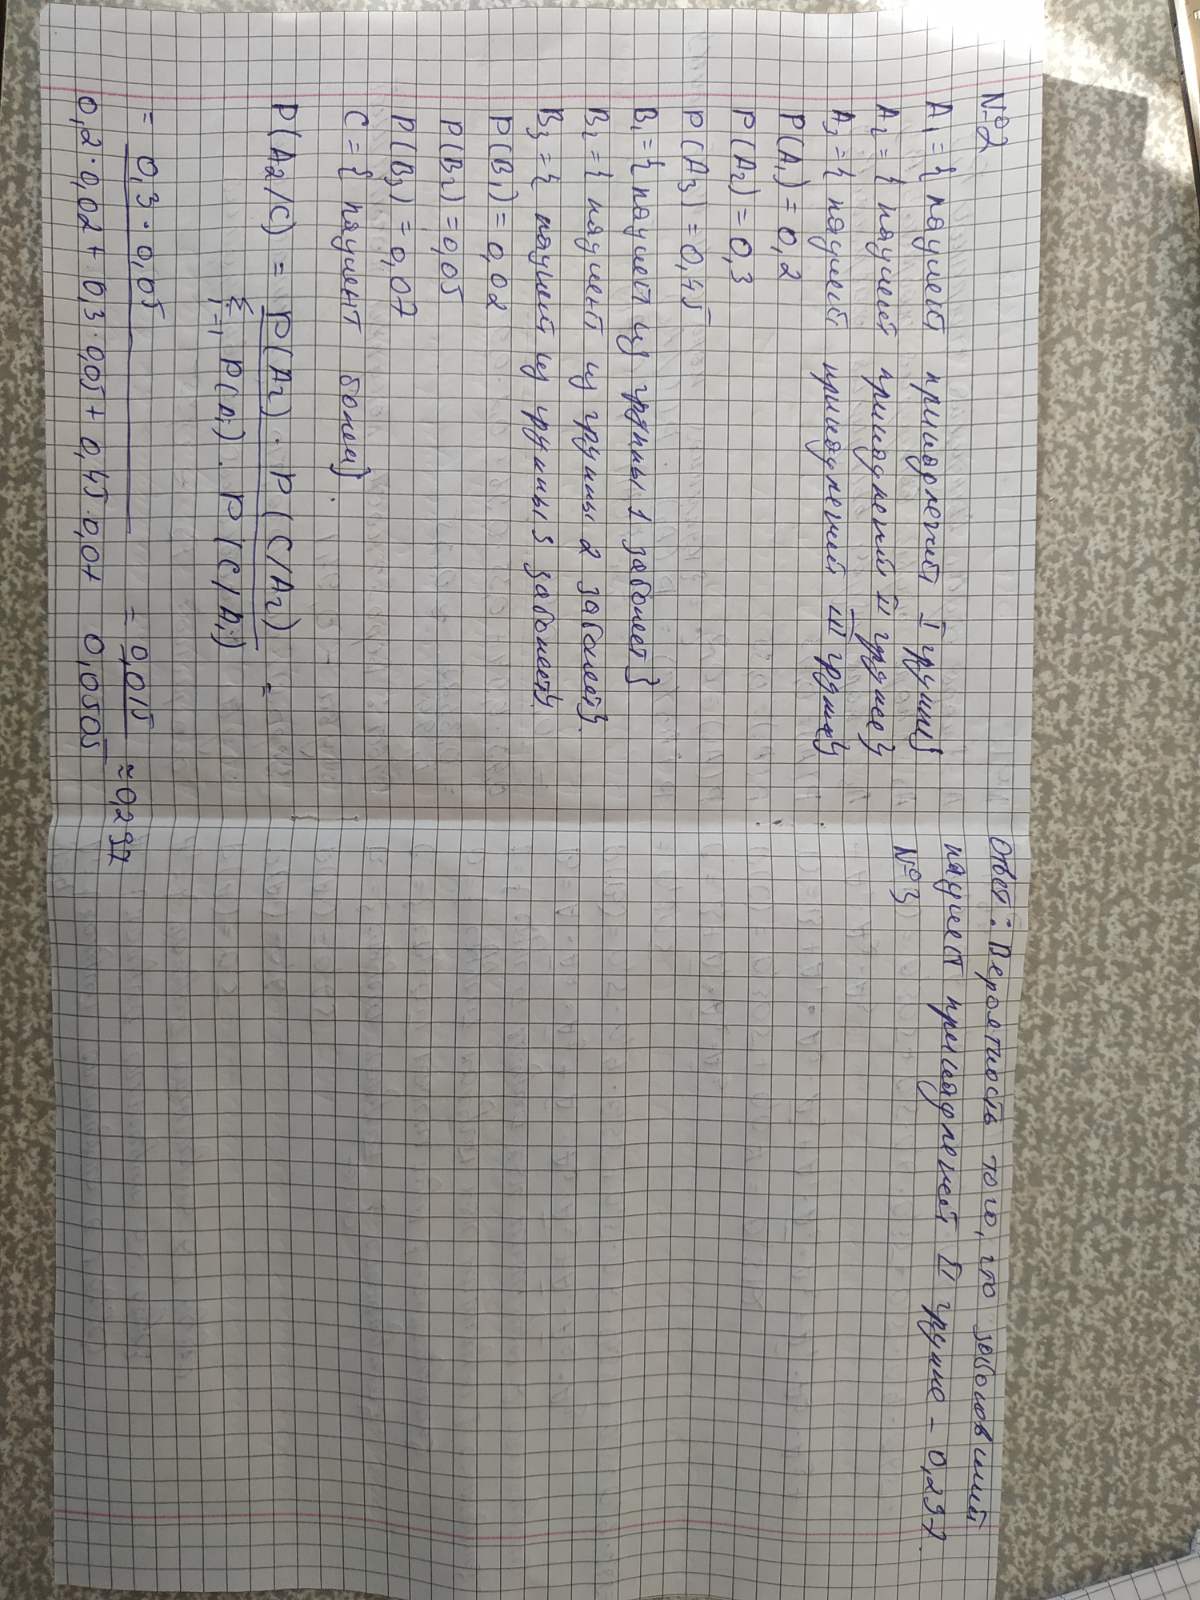 №2
A₁ = { пациент принадлежит I группе}
A₂ = { пациент принадлежит II группе}
A₃ = { пациент принадлежит III группе}
P(A₁) = 0,2
P(A₂) = 0,3
P(A₃) = 0,45
B₁ = { пациент из группы 1 заболеет}
B₂ = { пациент из группы 2 заболеет}.
B₃ = { пациент из группы 3 заболеет}.
P(B₁) = 0,02
P(B₂) = 0,05
P(B₃) = 0,07
C = { пациент болен}.
P(A₂/C) = P(A₂) · P(C/A₂) =
Σ i=1 P(Aᵢ) · P(C/Aᵢ)
= 0,3 · 0,05 = 0,015 ≈ 0,297
0,2 · 0,02 + 0,3 · 0,05 + 0,45 · 0,07 0,0505
Ответ: Вероятность того, что заболевший
пациент принадлежит II группе – 0,297.
№3